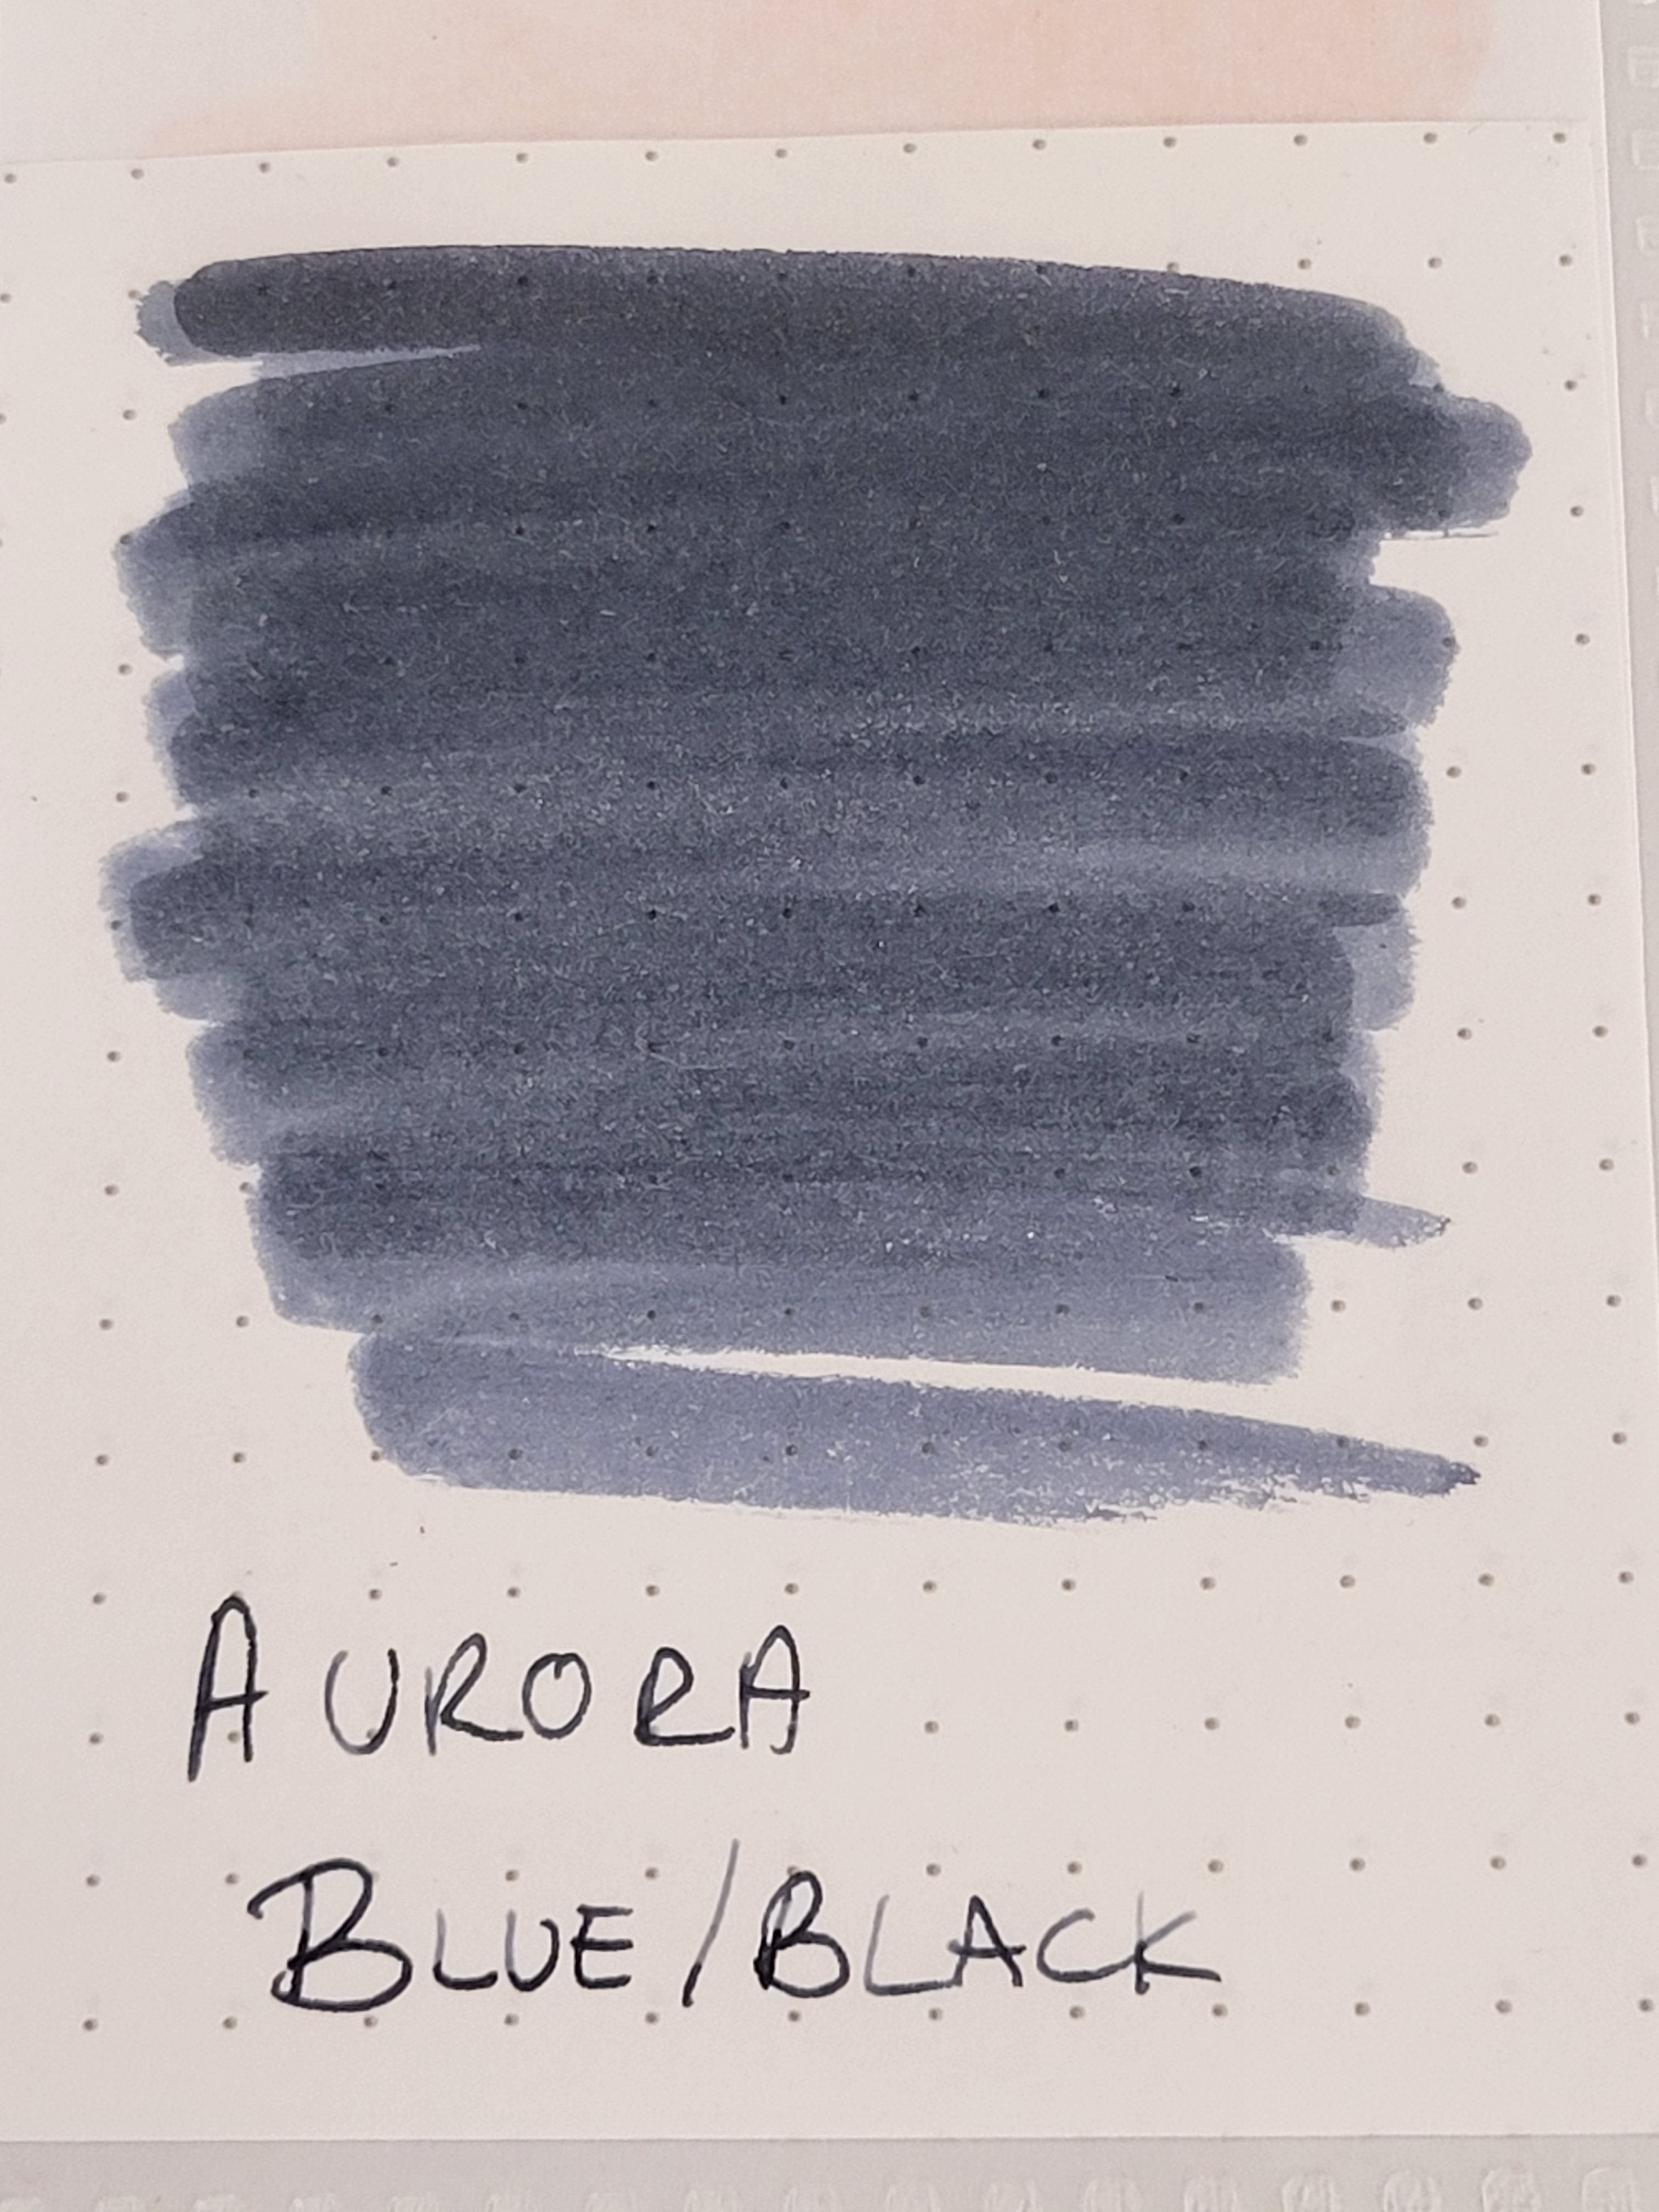 AURORA
BLUE/BLACK